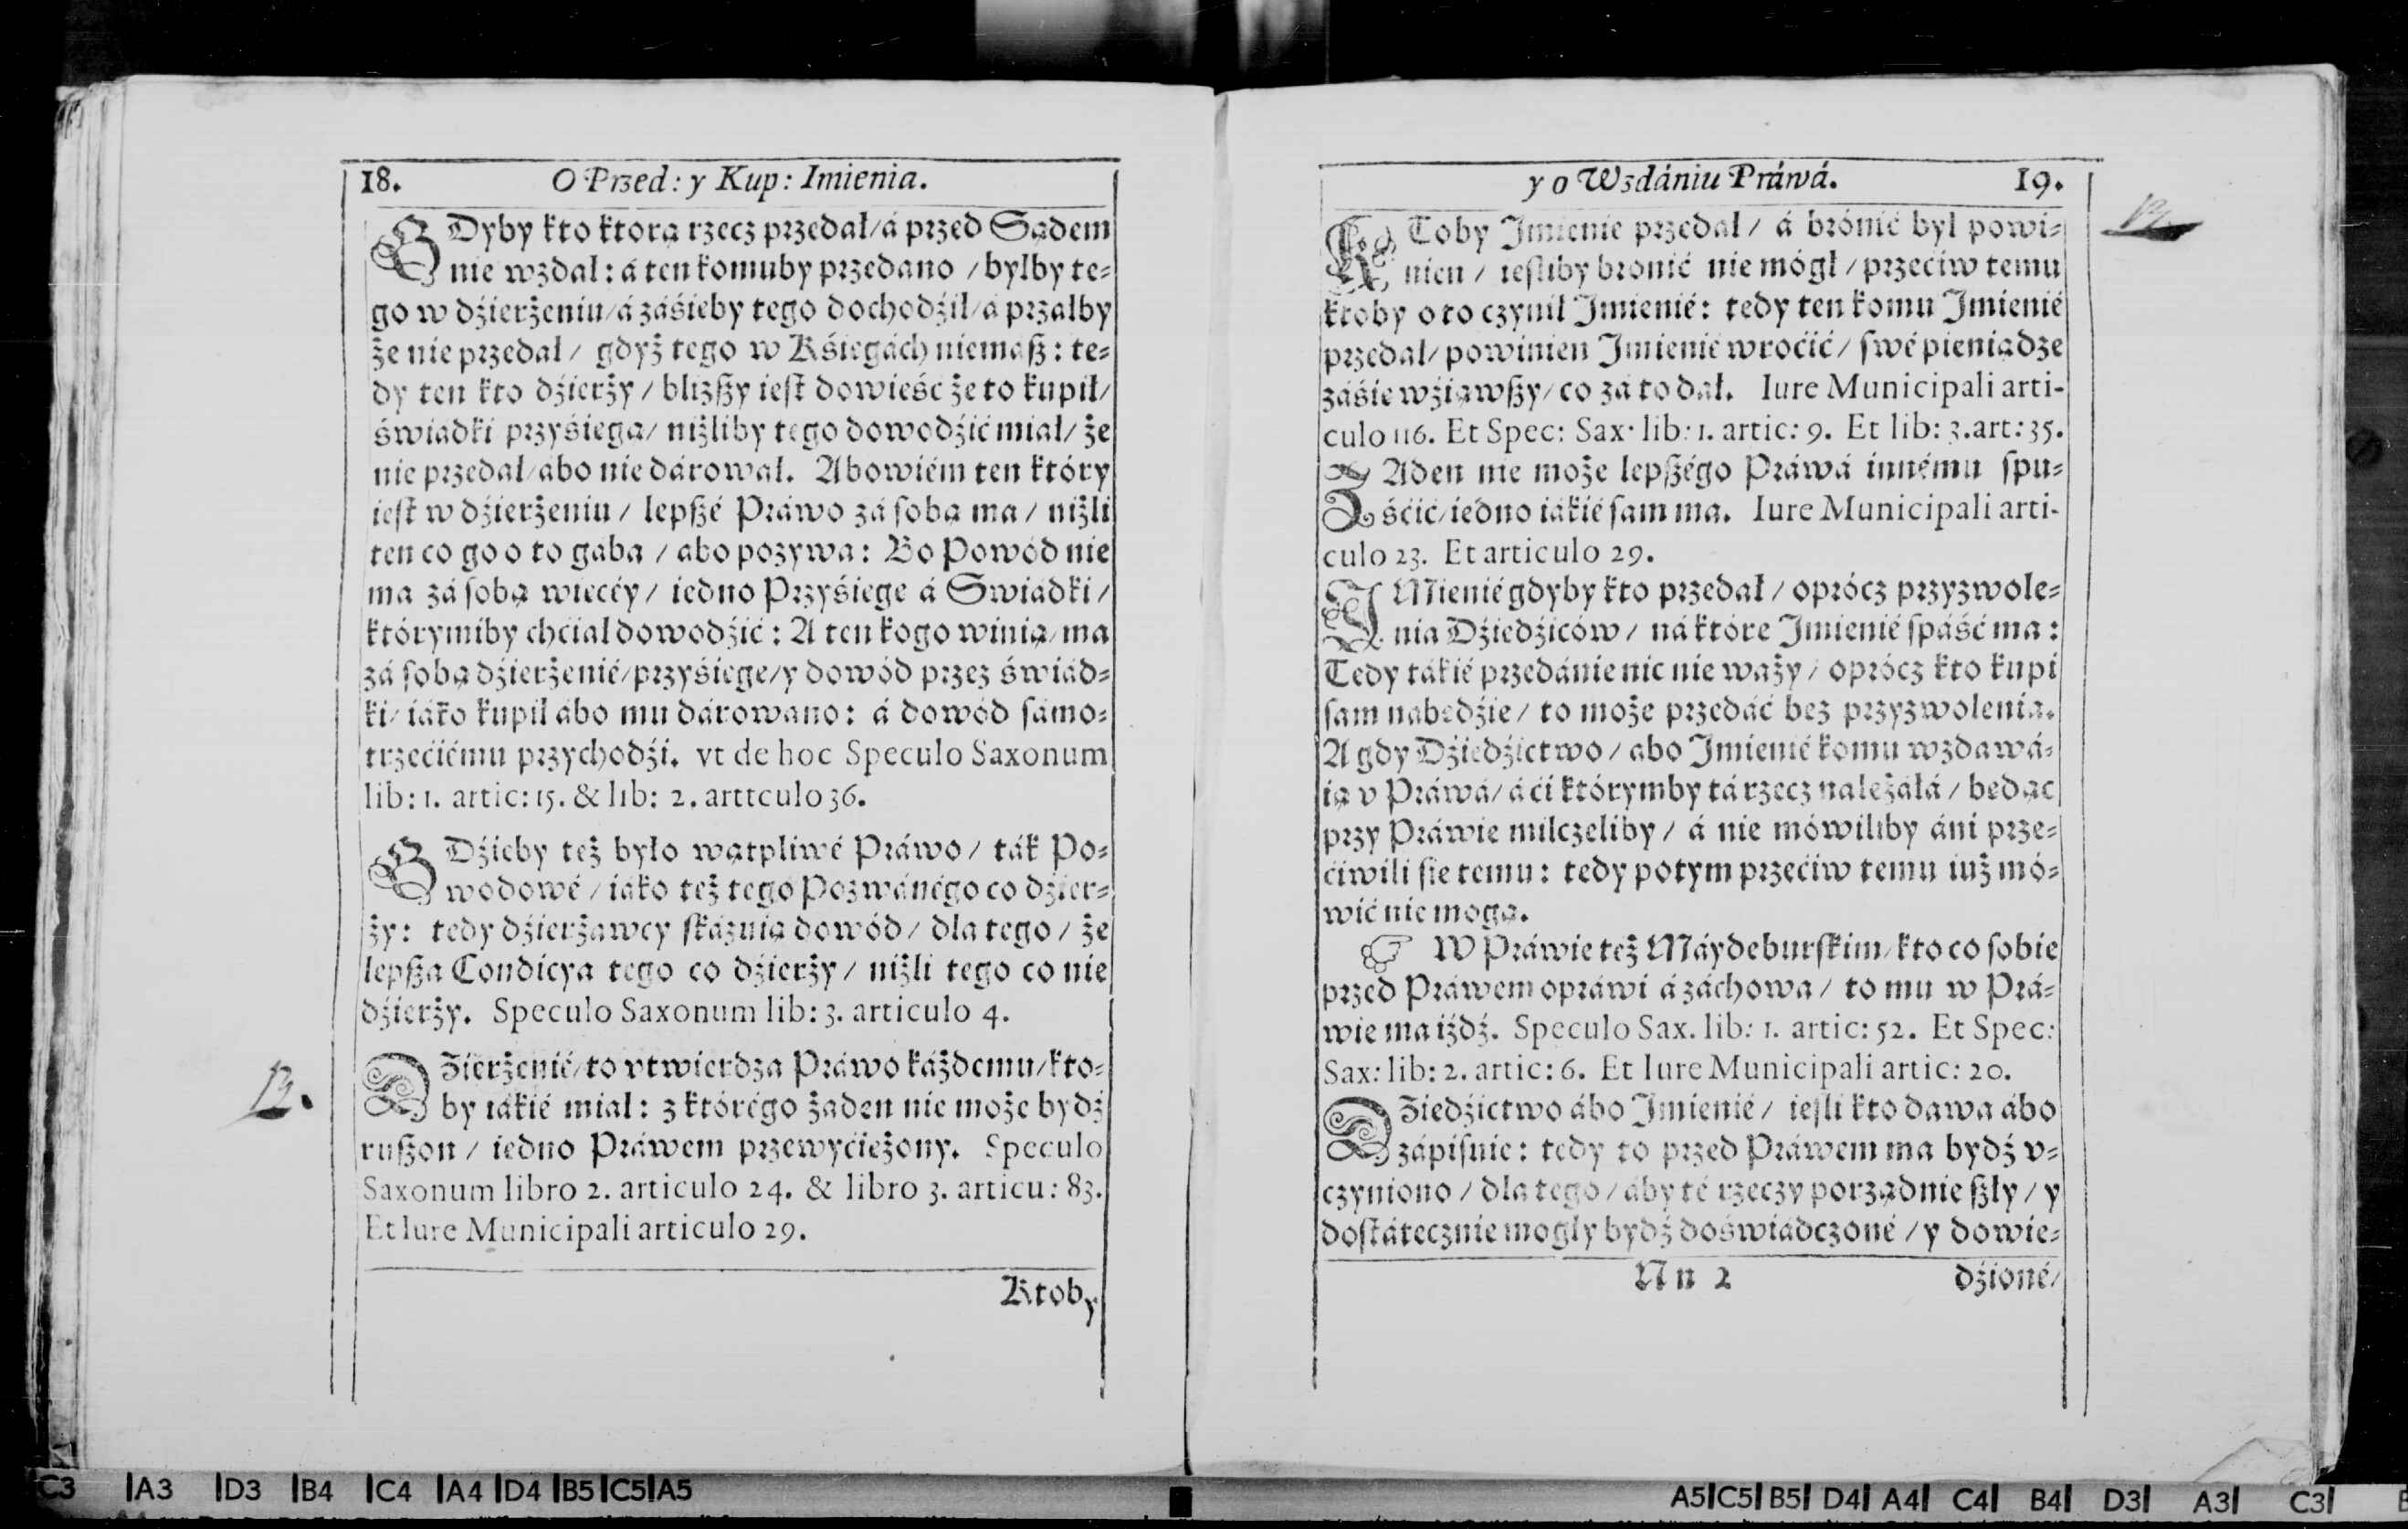 18. O Przed: y Kup: Imienia.
GDyby kto ktorą rzecz przedał/á przed Sądem
nie wzdał: á ten komuby przedano / byłby te-
go w dźierżeniu/á záśieby tego dochodźił/á przałby
że nie przedał / gdyż tego w Kśięgách niemaß: te-
dy ten kto dźierży / blizßy iest dowieść że to kupił/
świadki przyśięgą/ niżliby tego dowodźić miał/ że
nie przedał/ábo nie dárował. Abowiém ten który
iest w dźierżeniu / lepßé Práwo zá sobą ma / niżli
ten co go o to gaba / abo pozywa: Bo Powód nie
ma zá sobą więcéy / iedno Przyśięgę á Swiadki /
którymiby chćiał dowodźić: A ten kogo winią/ma
zá sobą dźierżenié/przyśięgę/y dowód przez świád-
ki/ iáko kupił ábo mu dárowano: á dowód sámo-
trzećiému przychodźi. vt de hoc Speculo Saxonum
lib: 1. artic: 15. & lib: 2. arttculo 36.
GDźieby też było wątpliwé Práwo / ták Po-
wodowé / iáko też tego Pozwánégo co dźier-
ży: tedy dźierżawcy skázuią dowód / dla tego / że
lepßa Condicya tego co dźierży / niżli tego co nie
dźierży. Speculo Saxonum lib: 3. articulo 4.
DZierżenié/to vtwierdza Práwo káżdemu/kto-
by iákié miał: z którégo żaden nie może bydź
rußon / iedno Práwem przewyćiężony. Speculo
Saxonum libro 2. articulo 24. & libro 3. articu: 83.
Et Iure Municipali articulo 29.
Ktoby
y o Wzdániu Práwá. 19.
KToby Jmienie przedał / á brónić był powi-
nien / iesliby bronić nie mógł / przećiw temu
ktoby o to czynił Jmienié: tedy ten komu Jmienié
przedał/ powinien Jmienié wroćić / swé pieniądze
záśię wźiąwßy/ co zá to dał. Iure Municipali arti-
culo 116. Et Spec: Sax· lib: 1. artic: 9. Et lib: 3. art: 35.
ZAden nie może lepßégo Práwá innému spu-
śćić/iedno iákié sam ma. Iure Municipali arti-
culo 23. Et articulo 29.
JMienié gdyby kto przedał / oprócz przyzwole-
nia Dźiedźiców / ná które Jmienié spáść ma:
Tedy tákié przedánie nic nie waży / oprócz kto kupi
sam nabędźie / to może przedáć bez przyzwolenia.
A gdy Dźiedźictwo / abo Jmienié komu wzdawá-
ią v Práwá/ á ći którymby tá rzecz należáłá / będąc
przy Práwie milczeliby / á nie mówiliby áni prze-
ćiwili się temu: tedy potym przećiw temu iuż mó-
wić nie mogą.
☞ W Práwie też Máydeburskim/kto co sobie
przed Práwem opráwi á záchowa / to mu w Prá-
wie ma iźdź. Speculo Sax. lib: 1. artic: 52. Et Spec:
Sax: lib: 2. artic: 6. Et Iure Municipali artic: 20.
DZiedźictwo ábo Jmienié / iesli kto dawa ábo
zápisuie: tedy to przed Práwem ma bydź v-
czyniono / dla tego / áby té rzeczy porządnie ßły / y
dostátecznie mogły bydź doświádczoné / y dowie-
Nn 2 dźioné/
C3 A3 D3 B4 C4 A4 D4 B5 C5 A5
A5 C5 B5 D4 A4 C4 B4 D3 A3 C3